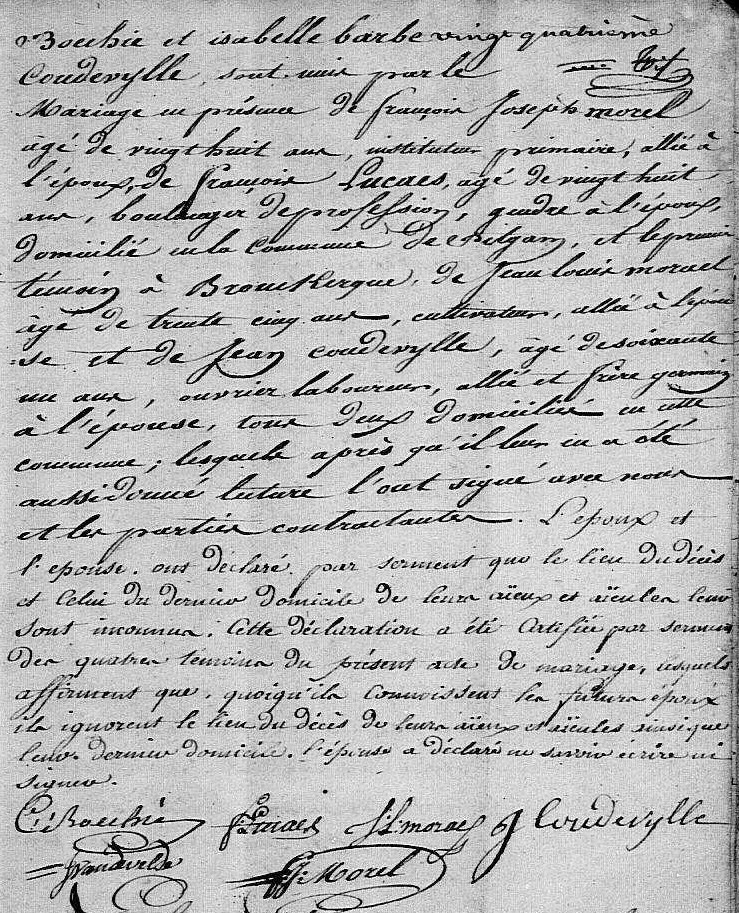 Bocchié et isabelle barbe vingt quatrième
Coudevylle, sont unis par le
Mariage en présence de françois Joseph morel
âgé de vingt huit ans, instituteur primaire, allié à
l'époux, de françois Lucaes, agé de vingt huit
ans, boulanger de profession, gendre à l'époux,
domicilié en la commune de, et le premier
témoin à Brouckerque, de Jean louis morael
âgé de trente cinq ans, cultivateur, allié à l'épou
-se et de Jean coudevylle, âgé de soixante
un ans, ouvrier laboureur, allié et frère germain
à l'épouse, tous deux domiciliés en cette
commune; lesquels après qu'il leur en a été
aussi donné lecture l'ont signé avec nous
et les parties contractantes. L'epoux et
l'epouse. ont déclaré. par serment que le lieu du décès
et Celui du dernier domicile de leurs aïeux et aïeules leur
sont inconnus. Cette déclaration a été Certifiée par serment
des quatres témoins du présent acte de mariage, lesquels
affirment que, quoiqu'ils connoissent les futurs époux
ils ignorent le lieu du décès de leurs aïeux et aïeules ainsi que
leur dernier domicile. l'épouse a déclaré ne savoir écrire ni
signer.
Bocchié f: Lucaes J: L: moraël J Coudevylle
f: J: Morel